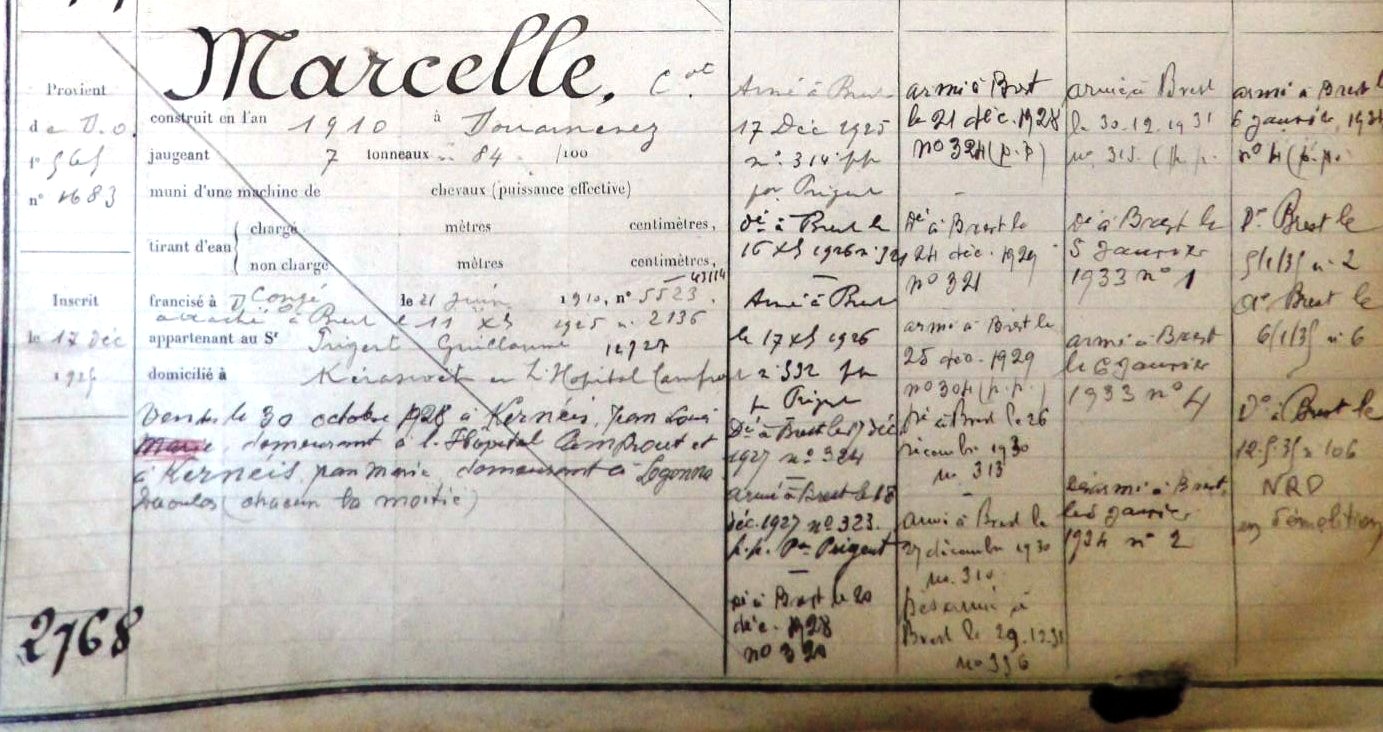 Marcelle, C.ot
Provient
de D.O.
fo 565
no 1683
construit en l'an 1910 à Douarnenez
jaugeant 7 tonneaux 84 /100
muni d'une machine de chevaux (puissance effective)
tirant d'eau
chargé mètres centimètres,
non chargé mètres centimètres,
43114
Inscrit
le 17 Déc
francisé à le 21 Juin 1910, no 5523.
à Brest le 11 Xb 1925 n. 2136
appartenant au Sr Prigent Guillaume
domicilié à l'Hopital Camfrout
Vendu le 30 octobre 1928 à Kernéis, Jean Louis
Marie, demeurant à l'Hopital Camfrout et
à Kerneis Jean Marie demeurant à Logonna
Daoulas (chacun la moitié)
2768
Armé à Brest
17 Déc 1925
no 314 pp
par Prigent
Dé à Brest le
16 Xb 1926
Armé à Brest
le 17 Xb 1926
n 332 pp
Prigent
Dé à Brest le 17 déc
1927 no 324
armé à Brest le 18
déc. 1927 no 323.
p.p. Pn Prigent
Dé à Brest le 20
déc. 1928
no 320
armé à Brest
le 21 déc. 1928
no 324 (p.p)
Dé à Brest le
24 déc. 1929
no 321
armé à Brest le
25 déc. 1929
no 304 (p.p.)
Dé à Brest le 26
décembre 1930
no. 313
armé à Brest le
27 décembre 1930
no. 310
Désarmé à
Brest le 29.12.31
no 336
armé à Brest
le 30.12.1931
no. 315 (p.p.
Dé à Brest le
5 Janvier
1933 no 1
armé à Brest
le 6 Janvier
1933 no 4
désarmé à Brest,
le 5 Janvier
1934 no 2
armé à Brest
6 Janvier, 1934
no 4 (p.p.
Dé Brest le
5/1/35 n. 2
Ar Brest le
6/1/35 n. 6
Dé à Brest le
12.5.35 n 106
NRD
en démolition